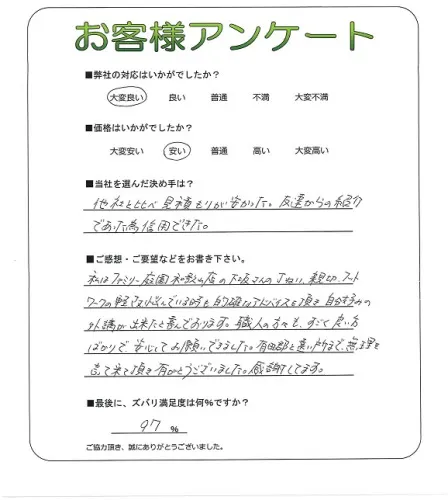 お客様アンケート
■弊社の対応はいかがでしたか？
大変良い 良い 普通 不満 大変不満
■価格はいかがでしたか？
大変安い 安い 普通 高い 大変高い
■当社を選んだ決め手は？
他社と比べ見積もりが安かった。友達からの紹介
であった為信用できた。
■ご感想・ご要望などをお書き下さい。
私はファミリー庭園和歌山店の下阪さんの丁ねい、親切、フット
ワークの軽さ、悩んでいる時も的確なアドバイスを頂き自分好みの
外構が出来たと喜んでおります。職人の方々も、すごく良い方
ばかりで安心してお願いできました。有田郡と遠い所まで、無理を
言って来て頂き有がとうございました。感謝してます。
■最後に、ズバリ満足度は何％ですか？
97 ％
ご協力頂き、誠にありがとうございました。